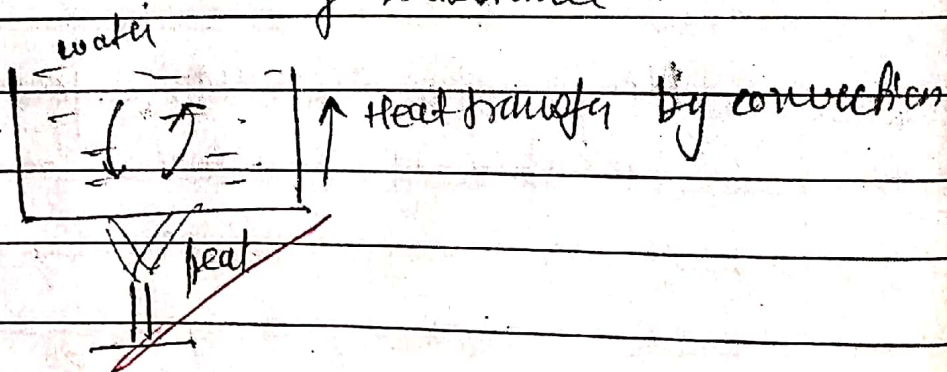 water
Heat transfer by convection
heat